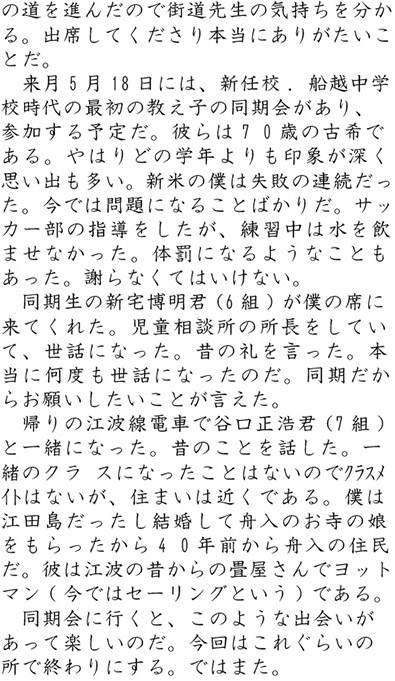 の道を進んだので街道先生の気持ちを分か
る。出席してくださり本当にありがたいこ
とだ。
　来月５月18日には、新任校．船越中学
校時代の最初の教え子の同期会があり、
参加する予定だ。彼らは７０歳の古希で
ある。やはりどの学年よりも印象が深く
思い出も多い。新米の僕は失敗の連続だっ
た。今では問題になることばかりだ。サッ
カー部の指導をしたが、練習中は水を飲
ませなかった。体罰になるようなことも
あった。謝らなくてはいけない。
　同期生の新宅博明君(6組)が僕の席に
来てくれた。児童相談所の所長をしてい
て、世話になった。昔の礼を言った。本
当に何度も世話になったのだ。同期だか
らお願いしたいことが言えた。
　帰りの江波線電車で谷口正浩君(7組)
と一緒になった。昔のことを話した。一
緒のクラ スになったことはないのでｸﾗｽﾒ
ｲﾄはないが、住まいは近くである。僕は
江田島だったし結婚して舟入のお寺の娘
をもらったから４０年前から舟入の住民
だ。彼は江波の昔からの畳屋さんでヨット
マン(今ではセーリングという)である。
　同期会に行くと、このような出会いが
あって楽しいのだ。今回はこれぐらいの
所で終わりにする。ではまた。